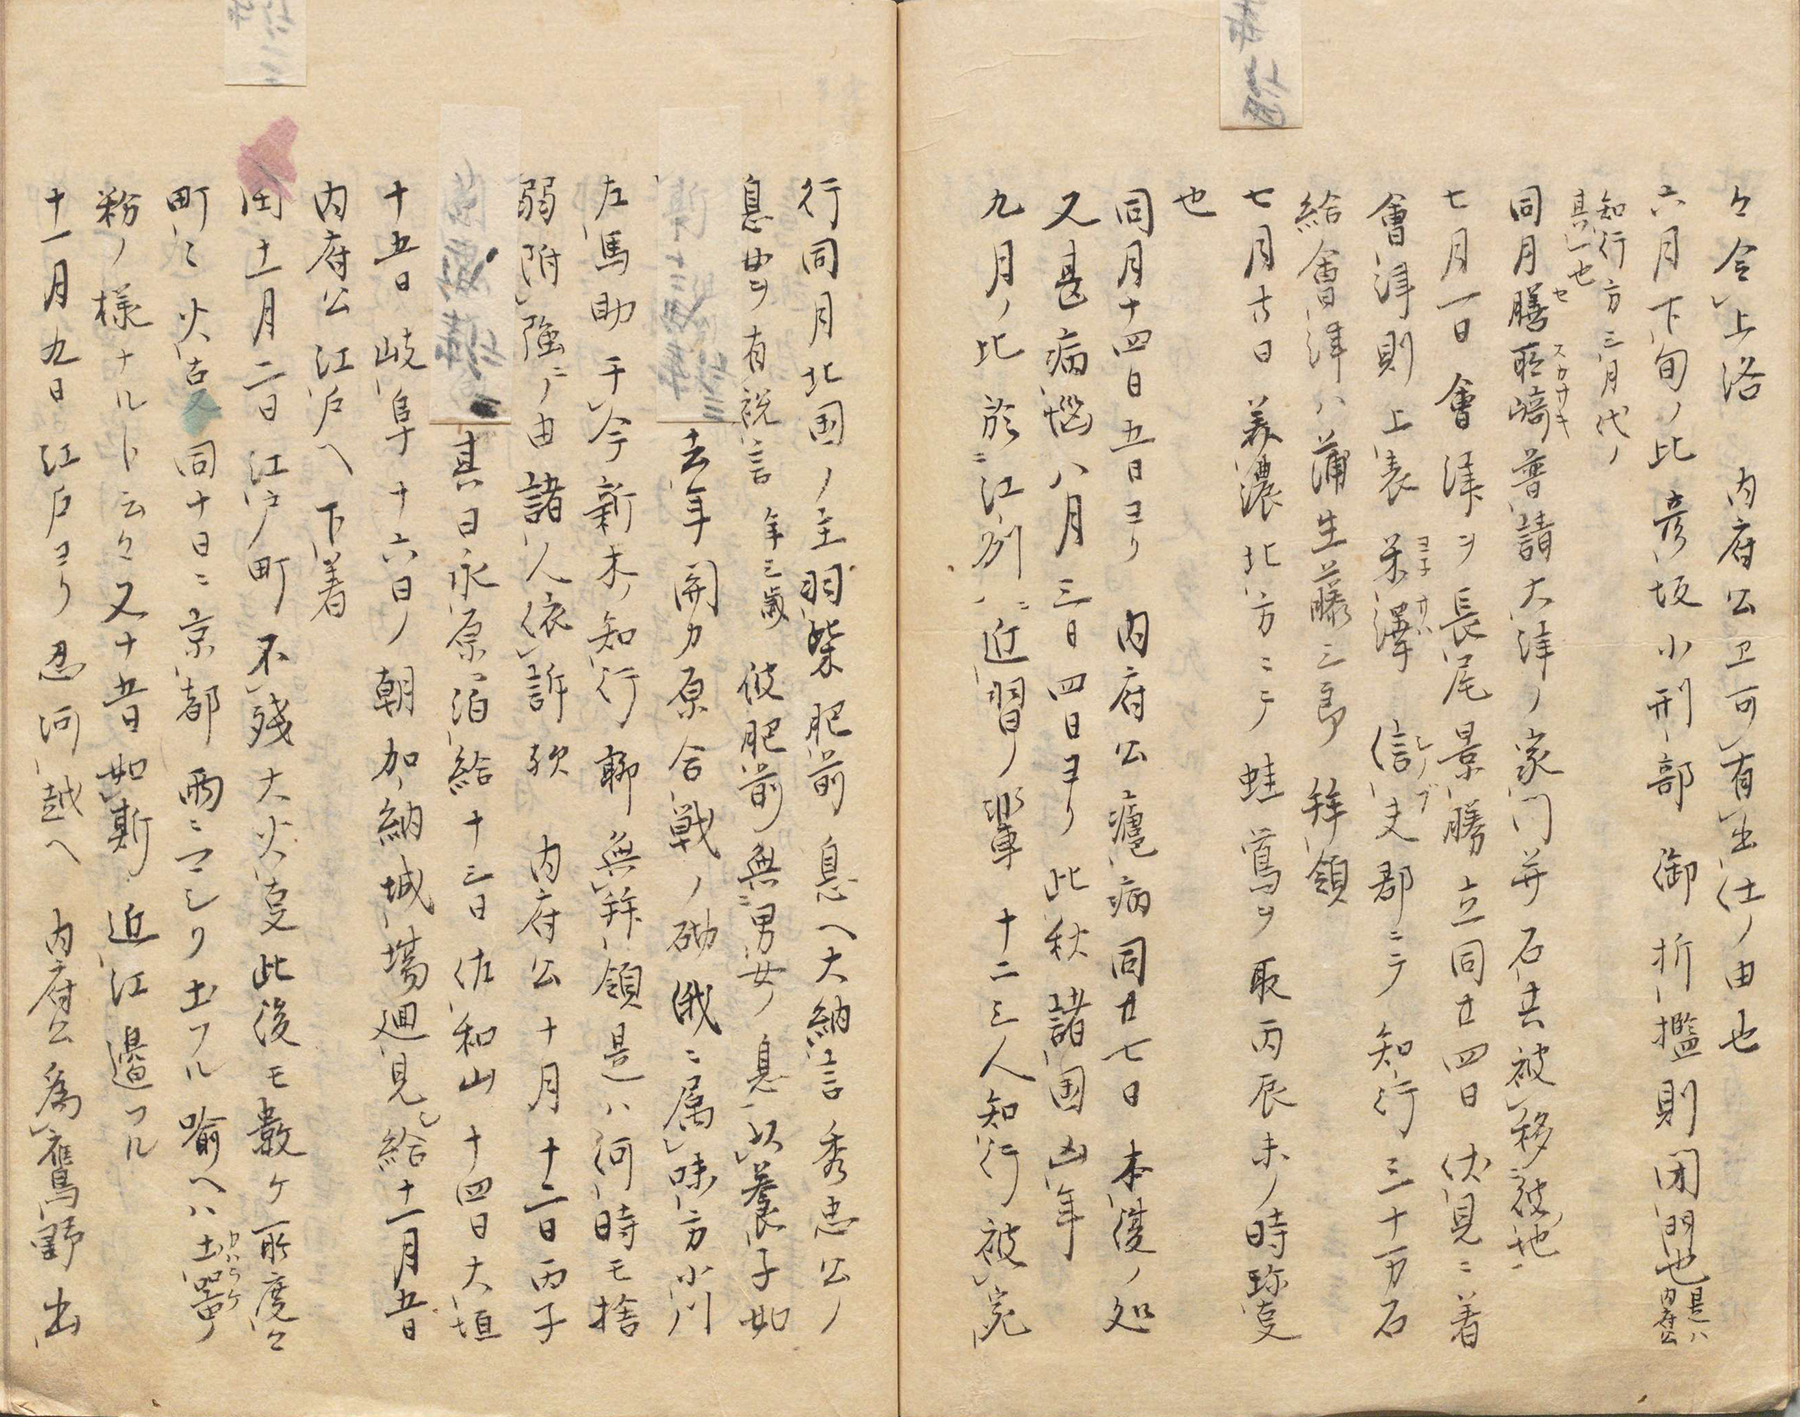 々令上洛　内府公エ可有出仕ノ由也
六月下旬ノ比彦坂小刑部御折檻則閉門也是ハ内府公
知行方三月代ノ
其一也
同月膳所崎普請大津ノ家門并石共被移彼地
セ　スカサキ
七月一日會津ヲ長尾景勝立同廿四日伏見ニ着
會津則上表米澤　信夫郡ニテ知行三十万石
ヨ子サハ　シノブ
給會津ハ蒲生藤三郎　拝領
七月　日美濃北方ニテ蛙鳶ヲ取丙辰未ノ時珎叓
也
同月十四日五日ヨリ　内府公瘧病同廿七日本復ノ処
又甚病惱八月三日四日ヨリ此秋諸国凶年
九月ノ比於江州ニ近習ノ輩　十二三人知行被宛
行同月北国ノ主羽柴肥前息ヘ大納言秀忠公ノ
息女ヲ有祝言　年三歳　彼肥前無男女ノ息以養子如
去年関カ原合戦ノ砌俄ニ属味方小川
左馬助于今新木ノ知行聊無拝領是ハ何時モ捨
弱附強ニノ由諸人依訴歟　内府公十月十二日丙子
其日永原ニ泊給十三日佐和山十四日大垣
十五日岐阜十六日ノ朝加納城塲廻見シ給十一月五日
内府公江戸ヘ下着
十一月二日江戸町不残大火叓此後モ數ケ所度々
町々火古　同十日ニ京都雨ニマシリ土フル喩ヘハ土器ノ
カハラケ
粉ノ様ナルト云々又十五日如斯近江邉フル
十一月九日江戸ヨリ忍河越ヘ　内府公為鷹野出